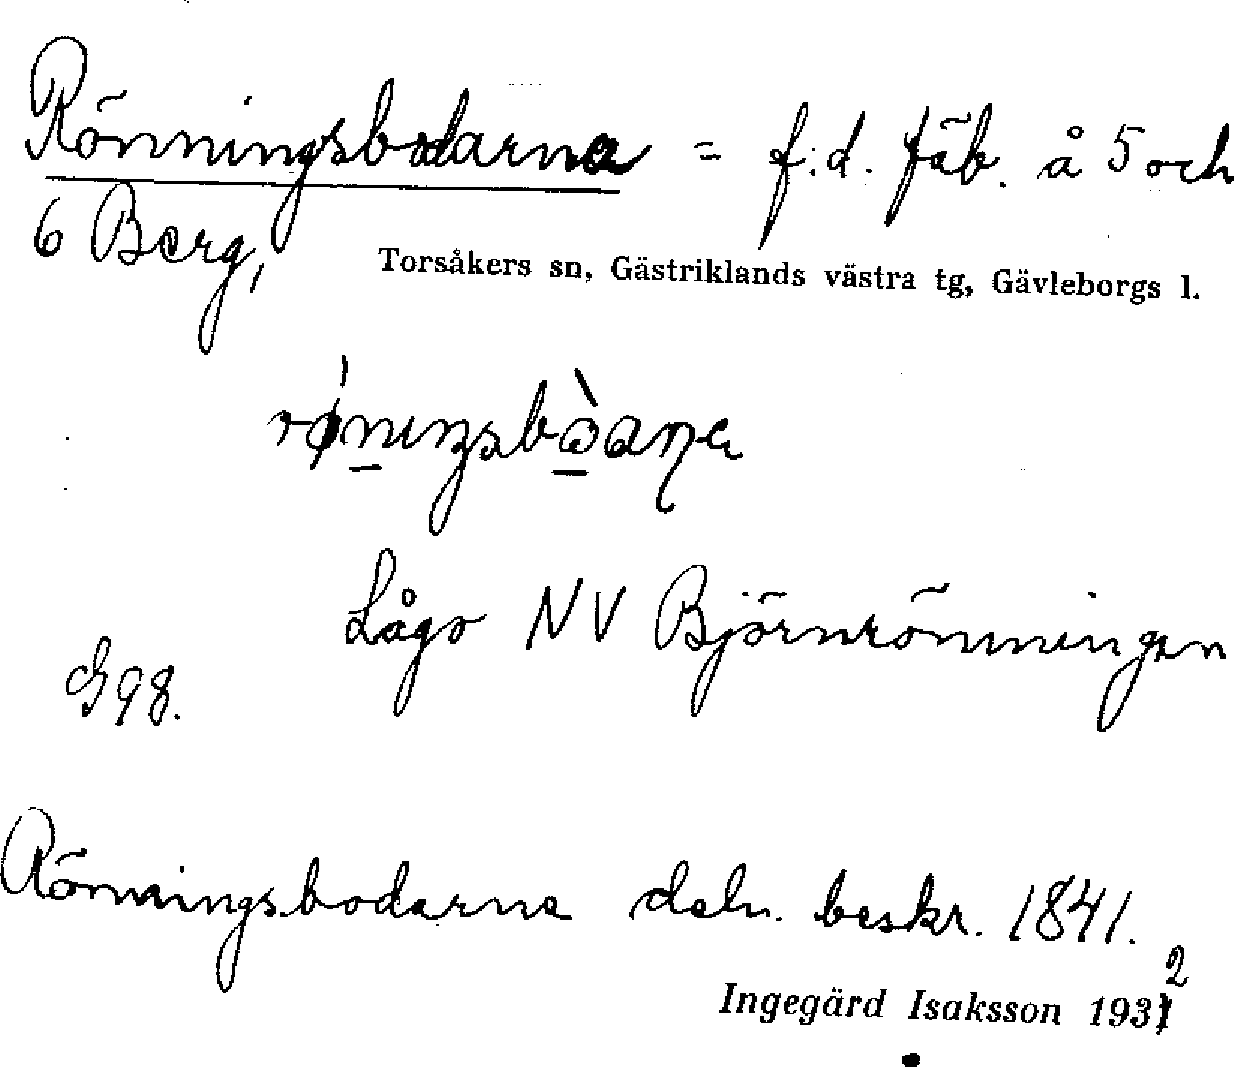 Rönningsbodarna = f.d. fäb. å 5 och
6 Berg,
Torsåkers sn, Gästriklands västra tg, Gävleborgs l.
Lågo NV Björnrönningen
G98.
Rönningsbodarne deln. beskr. 1841.
Ingegärd Isaksson 1932